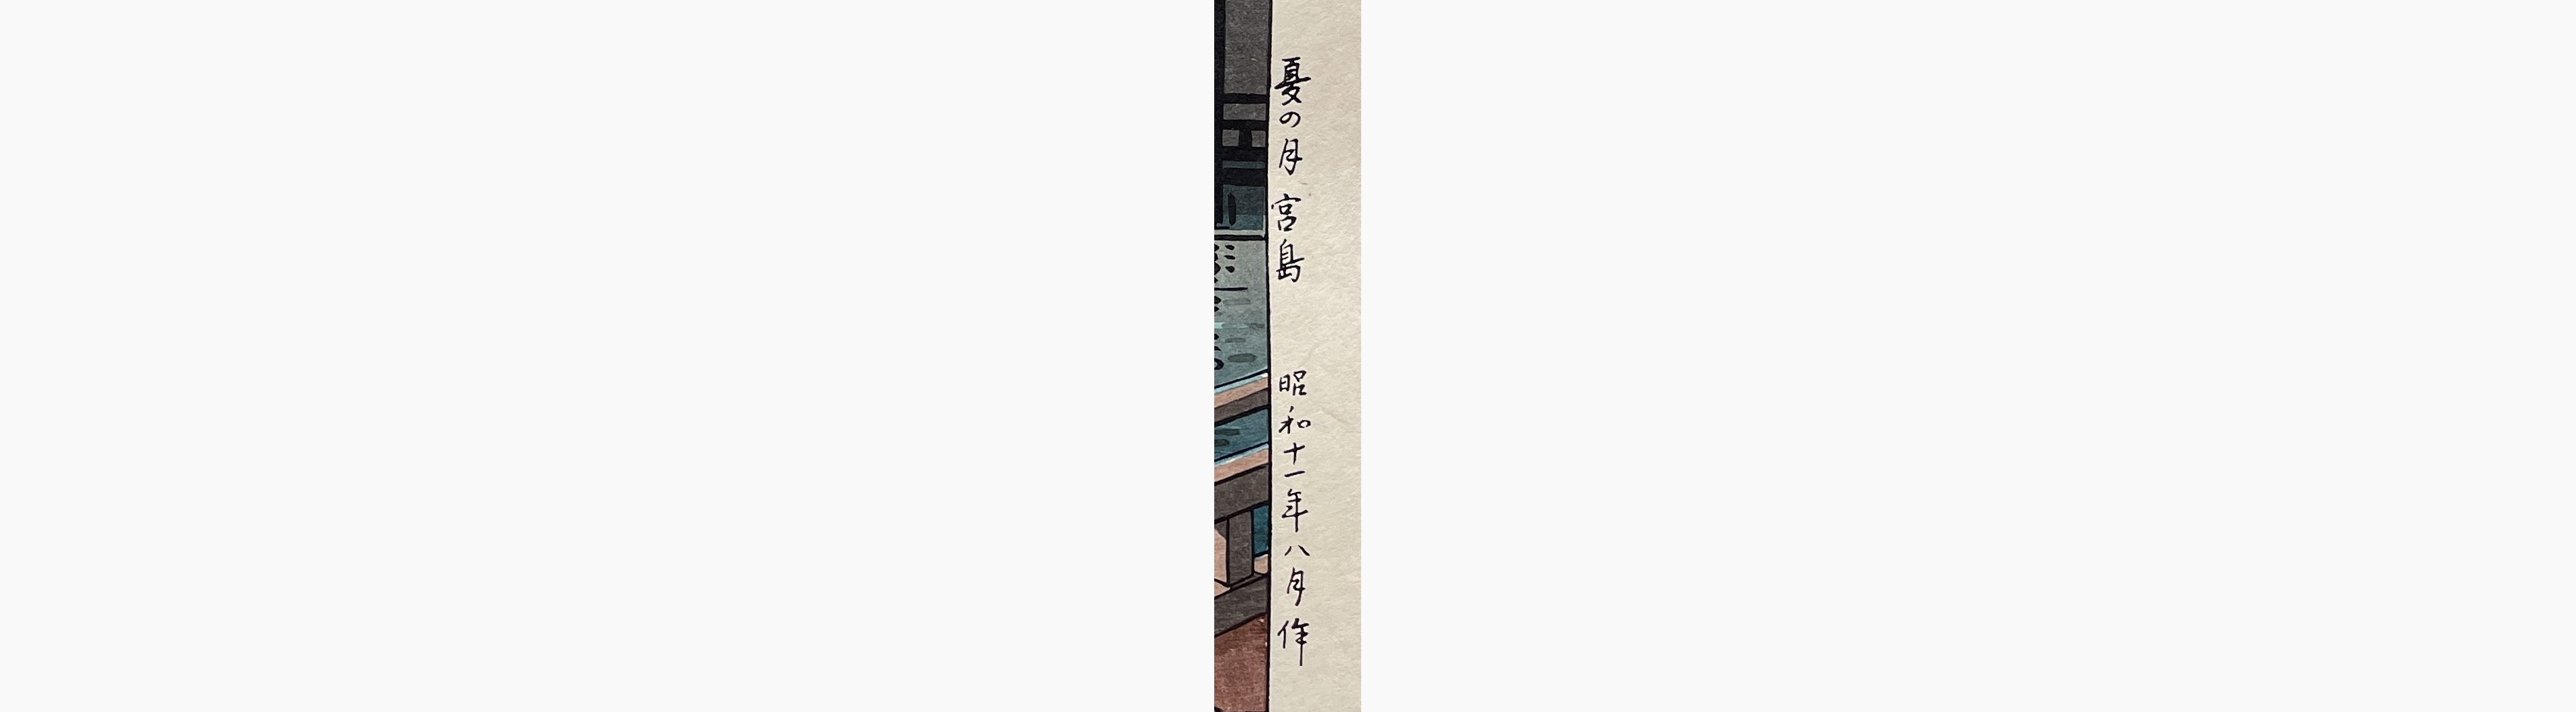 夏の月 宮島 昭和十一年八月作